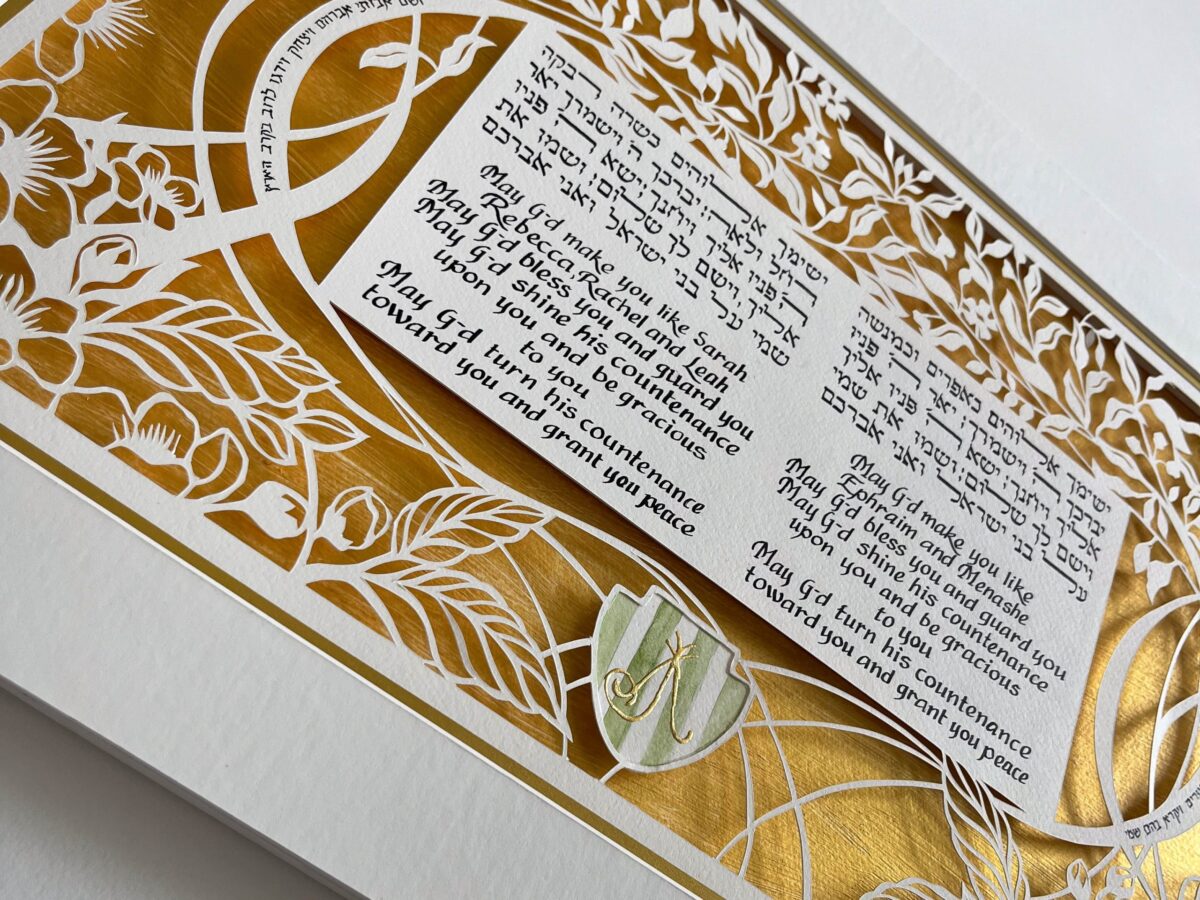 אבותי אברהם ויצחק וידגו לרוב בקרב הארץ
ישימך אלוהים כשרה רבקה
רחל ולאה: יברכך ה' וישמרך יאר
ה' פניו אליך ויחנך: ישא ה' פניו
אליך, וישם לך שלום: ושמו את
שמי על בני ישראל ואני אברכם
May G-d make you like Sarah
Rebecca, Rachel and Leah
May G-d bless you and guard you
May G-d shine his countenance
upon you and be gracious
to you
May G-d turn his countenance
toward you and grant you peace
ישימך אלוהים כאפרים וכמנשה
יברכך ה' וישמרך: יאר ה' פניו
אליך ויחנך: ישא ה' פניו אליך
וישם לך שלום: ושמו את שמי
על בני ישראל ואני אברכם
May G-d make you like
Ephraim and Menashe
May G-d bless you and guard you
May G-d shine his countenance
upon you and be gracious
to you
May G-d turn his countenance
toward you and grant you peace
ויקרא בהם שמי